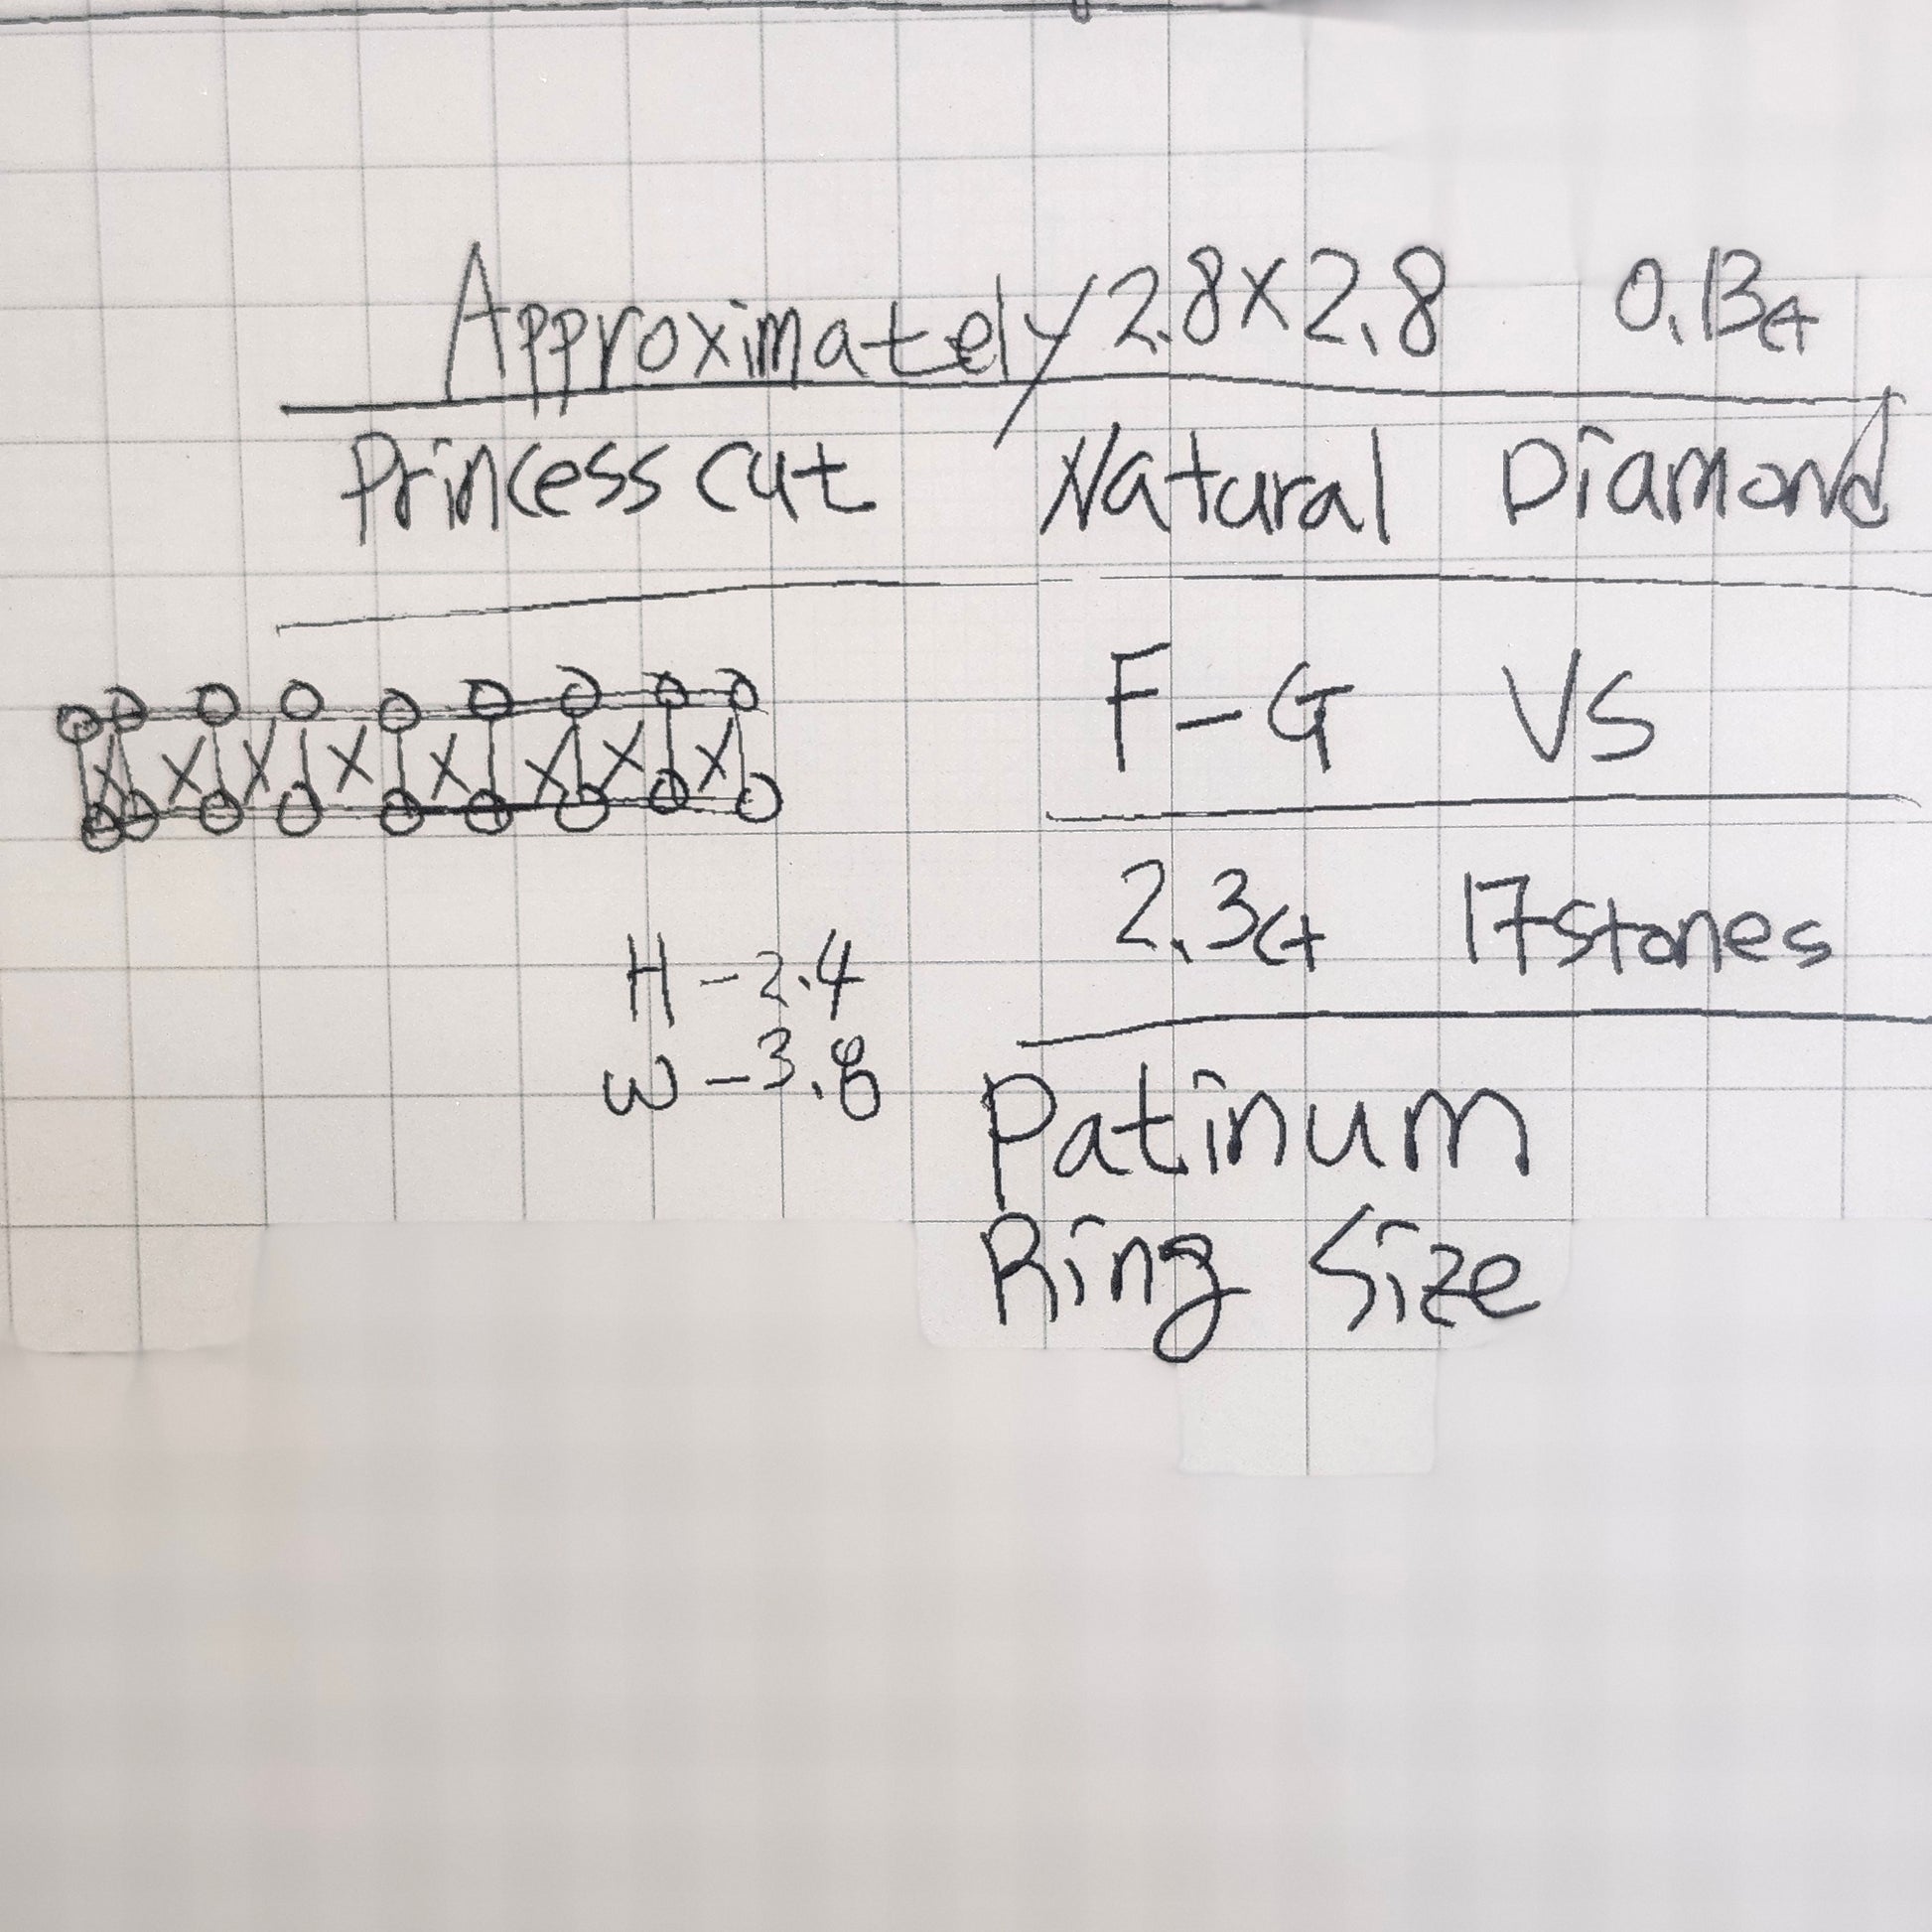 Approximately 2.8x2.8 0.13ct
Princess cut Natural Diamond
F-G VS
2.3ct 17stones
H-2.4
W-3.8
Patinum
Ring Size